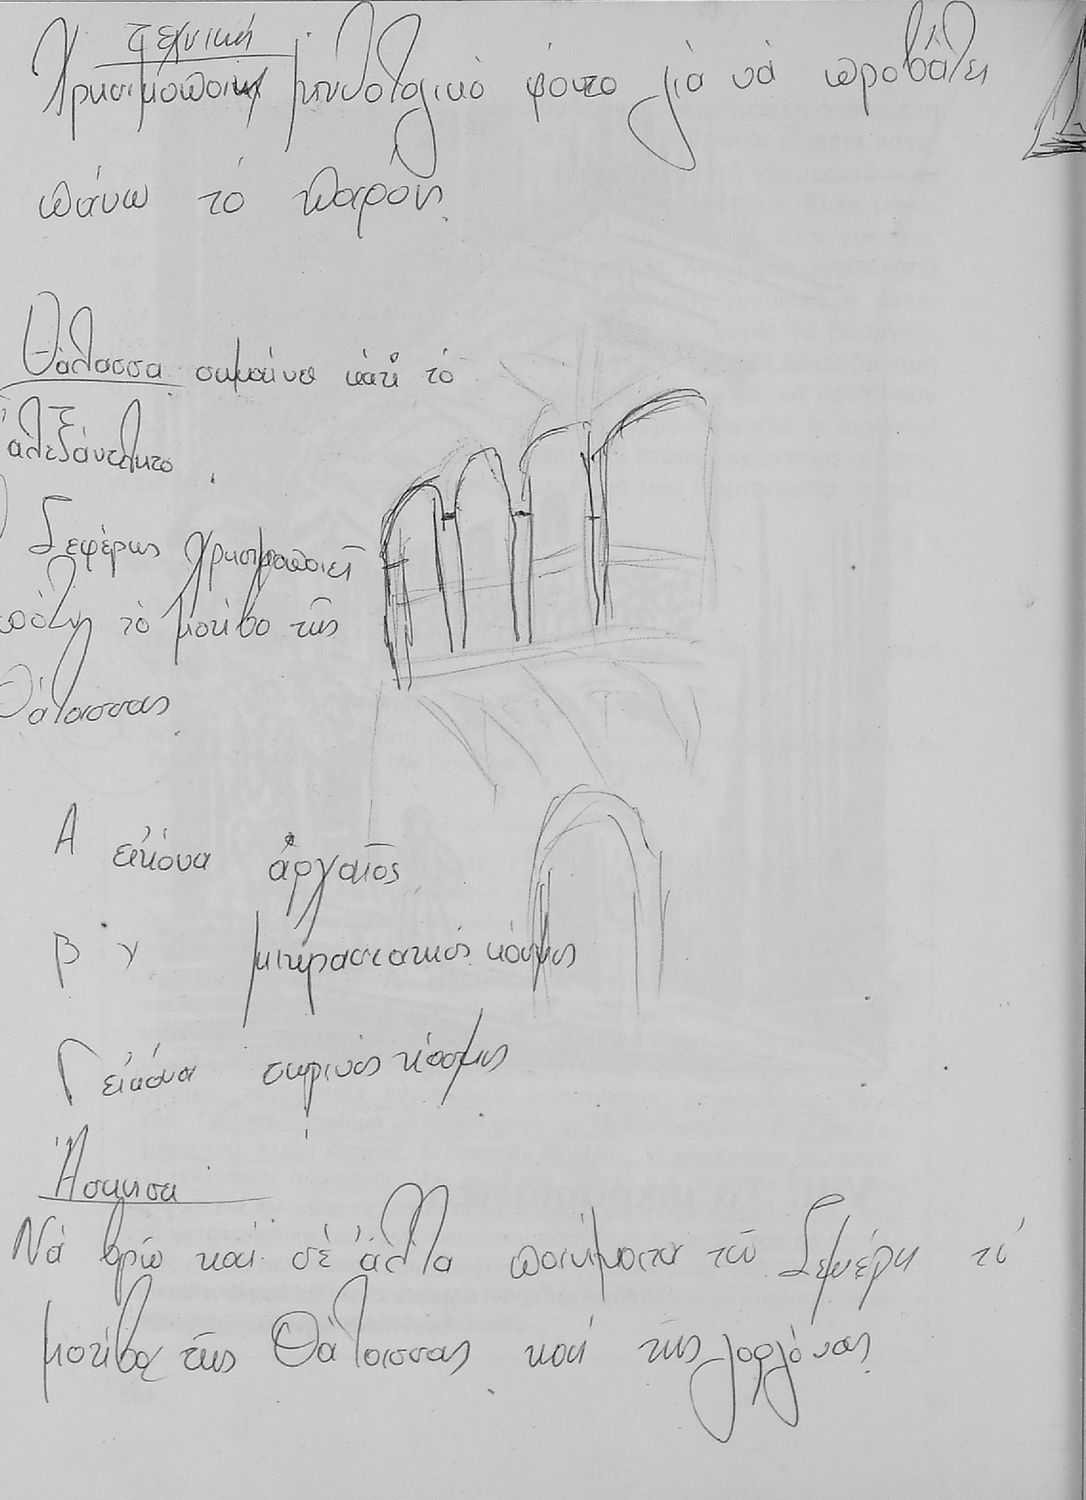 τεχνική
Χρησιμοποιεί μυθολογικό φόντο γιὰ νὰ προβάλει
πάνω τὸ παρόν.
Θάλασσα σημαίνει κάτι τὸ
ἀλεξάντλητο
Σεφέρης χρησιμοποιεῖ
πάλι τὸ μοτίβο τῆς
Θάλασσας
Α εἰκόνα ἀρχαῖος
β γ κόσμος
Γ εἰκόνα τωρινὸς κόσμος
Ἄσκησα
Νὰ βρῶ καὶ σὲ ἄλλα ποιήματα τοῦ Σεφέρη τὸ
μοτίβο τῆς Θάλασσας καὶ τῆς γοργόνας